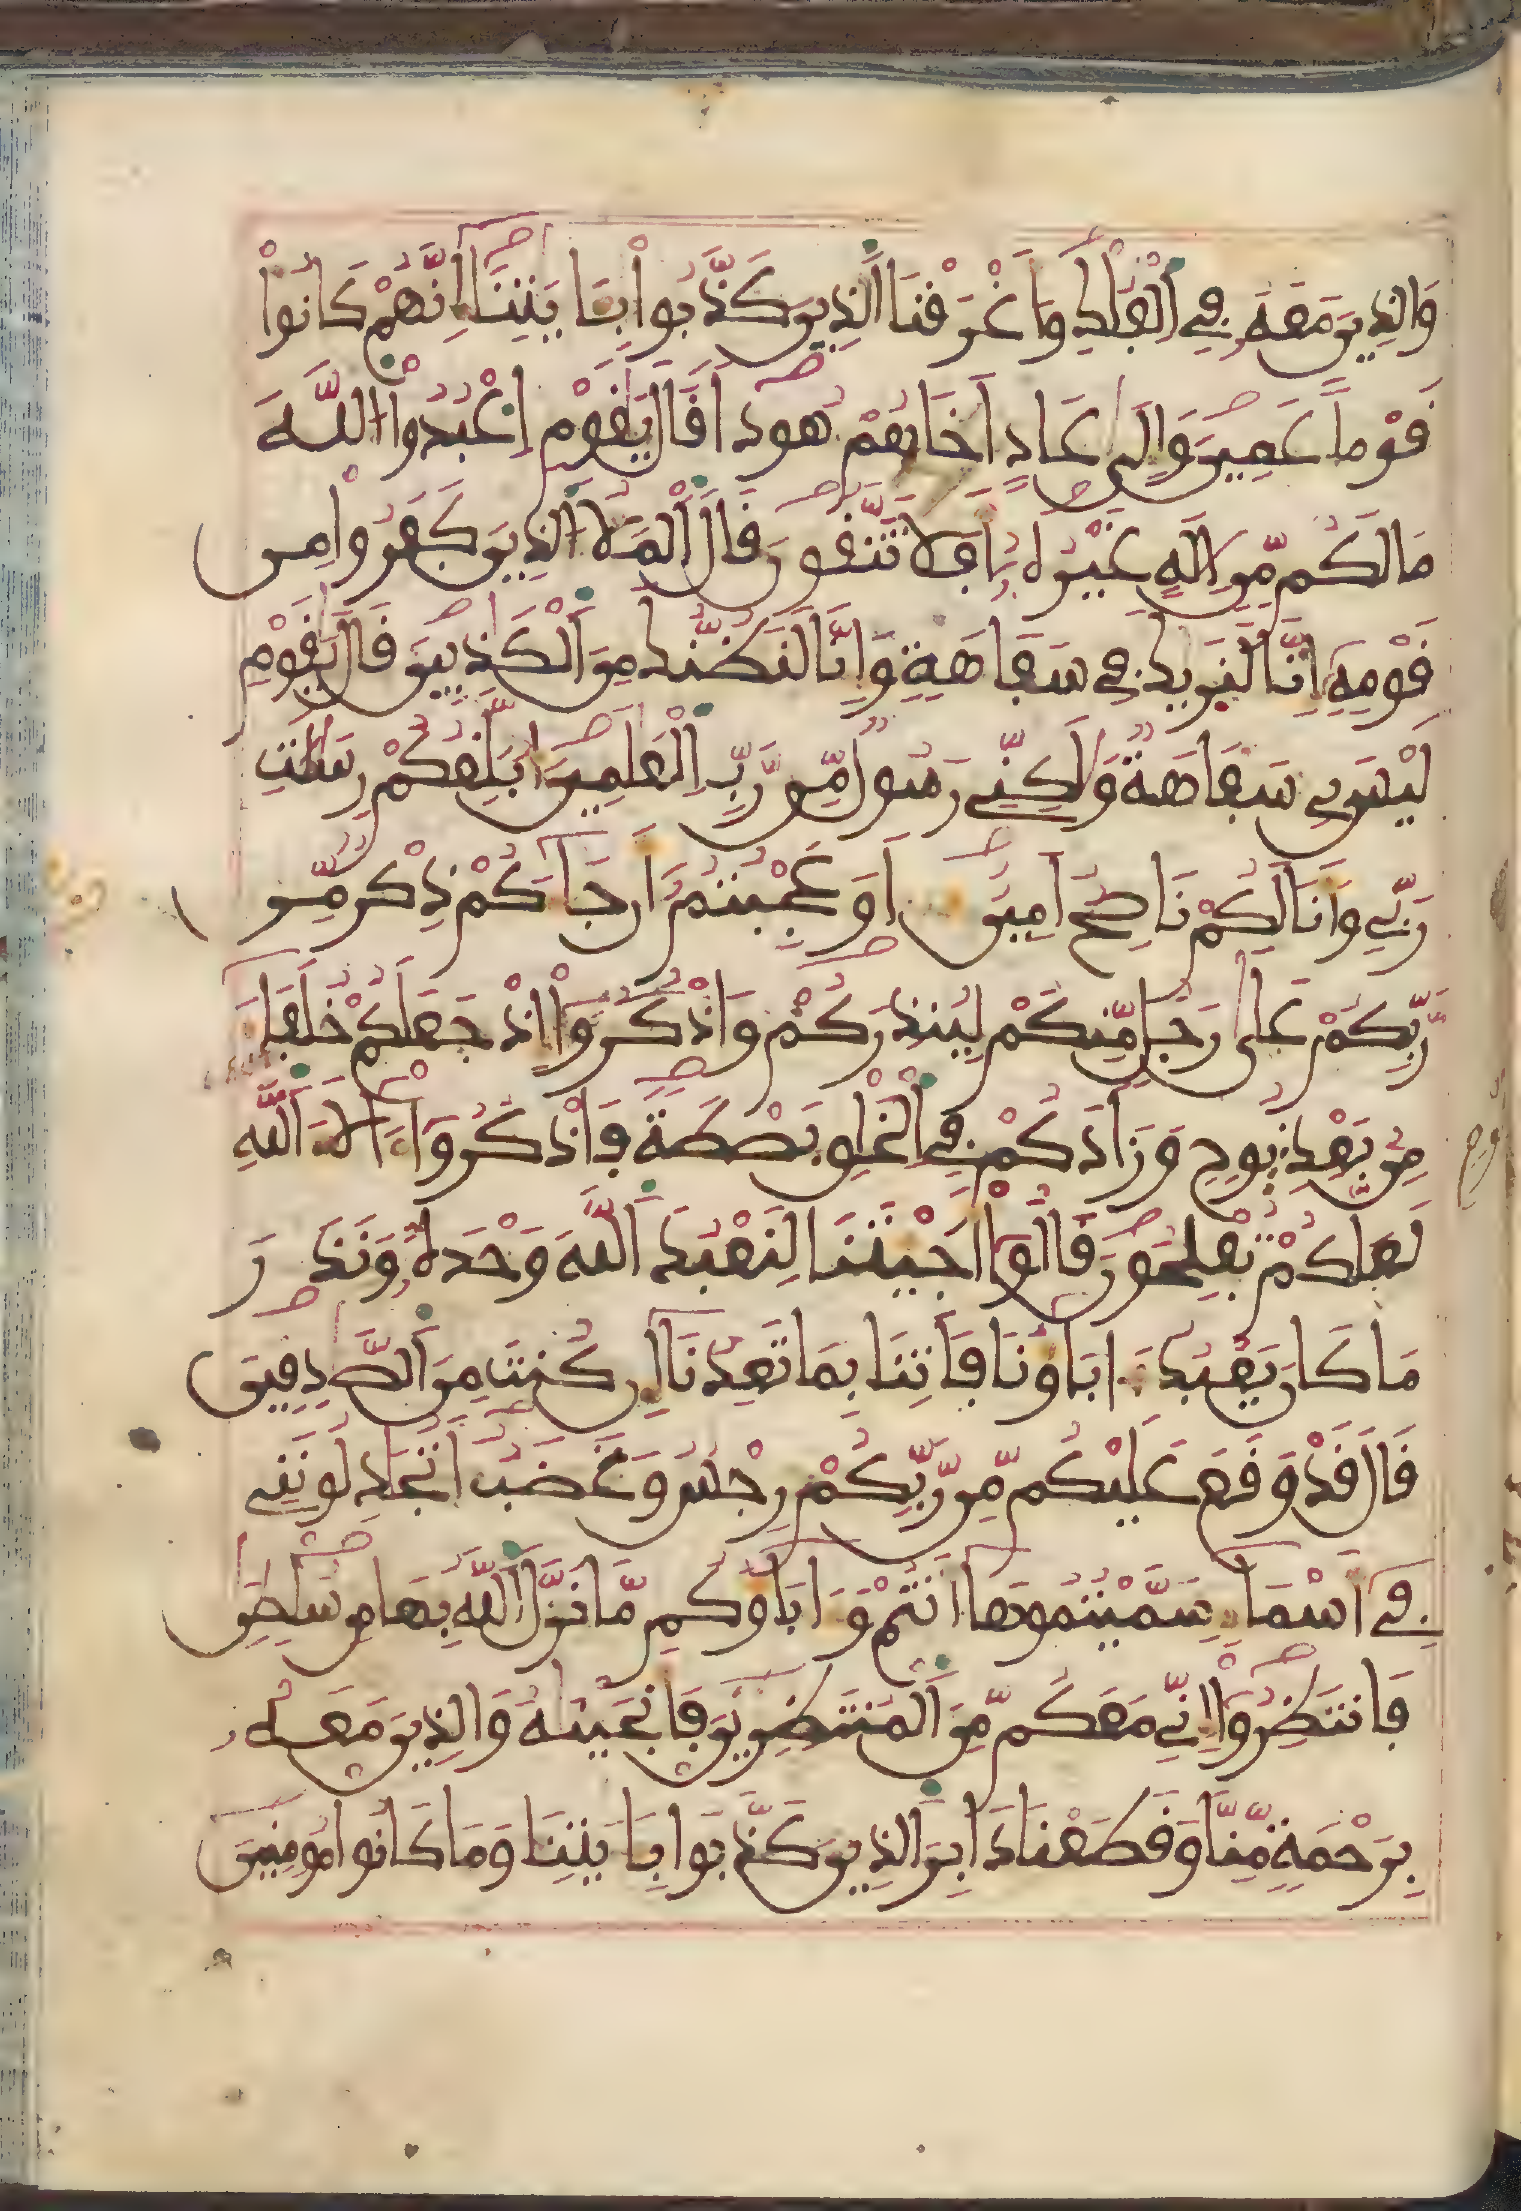 وَالذِينَ مَعَهُۥ فِے اِ۬لْفُلْكِ وَأَغْرَقْنَا اَ۬لذِينَ كَذَّبُواْ بِـَٔايَٰتِنَآ إِنَّهُمْ كَانُواْ
قَوْماً عَمِينَ وَإِلَىٰ عَادٍ أَخَاهُمْ هُوداً قَالَ يَٰقَوْمِ اِ۟عْبُدُواْ اُ۬للَّهَ
مَا لَكُم مِّنِ اِلَٰهٍ غَيْرُهُۥٓ أَفَلَا تَتَّقُونَ قَالَ اَ۬لْمَلَأُ اُ۬لذِينَ كَفَرُواْ مِن
قَوْمِهِۦٓ إِنَّا لَنَرَىٰكَ فِے سَفَاهَةٍ وَإِنَّا لَنَظُنُّكَ مِنَ اَ۬لْكَٰذِبِينَ قَالَ يَٰقَوْمِ
لَيْسَ بِے سَفَاهَةٌ وَلَٰكِنِّے رَسُولٌ مِّن رَّبِّ اِ۬لْعَٰلَمِينَ أُبَلِّغُكُمْ رِسَٰلَٰتِ
رَبِّے وَأَنَا لَكُمْ نَاصِحٌ اَمِينٌ اَوَعَجِبْتُمُۥٓ أَن جَآءَكُمْ ذِكْرٌ مِّن
رَّبِّكُمْ عَلَىٰ رَجُلٍ مِّنكُمْ لِيُنذِرَكُمْ وَاذْكُرُوٓاْ إِذْ جَعَلَكُمْ خُلَفَآءَ
مِنۢ بَعْدِ نُوحٍ وَزَادَكُمْ فِے اِ۬لْخَلْقِ بَصْطَةً فَاذْكُرُوٓاْ ءَالَآءَ اَ۬للَّهِ
لَعَلَّكُمْ تُفْلِحُونَ قَالُوٓاْ أَجِئْتَنَا لِنَعْبُدَ اَ۬للَّهَ وَحْدَهُۥ وَنَذَرَ
مَا كَانَ يَعْبُدُ ءَابَآؤُنَا فَأْتِنَا بِمَا تَعِدُنَآ إِن كُنتَ مِنَ اَ۬لصَّٰدِقِينَ
قَالَ قَدْ وَقَعَ عَلَيْكُم مِّن رَّبِّكُمْ رِجْسٌ وَغَضَبٌ اَتُجَٰدِلُونَنِے
فِےٓ أَسْمَآءٍ سَمَّيْتُمُوهَآ أَنتُمْ وَءَابَآؤُكُم مَّا نَزَّلَ اَ۬للَّهُ بِهَا مِن سُلْطَٰنٍ
فَانتَظِرُوٓاْ إِنِّے مَعَكُم مِّنَ اَ۬لْمُنتَظِرِينَ فَأَنجَيْنَٰهُ وَالذِينَ مَعَهُۥ
بِرَحْمَةٍ مِّنَّا وَقَطَعْنَا دَابِرَ اَ۬لذِينَ كَذَّبُواْ بِـَٔايَٰتِنَا وَمَا كَانُواْ مُومِنِينَ